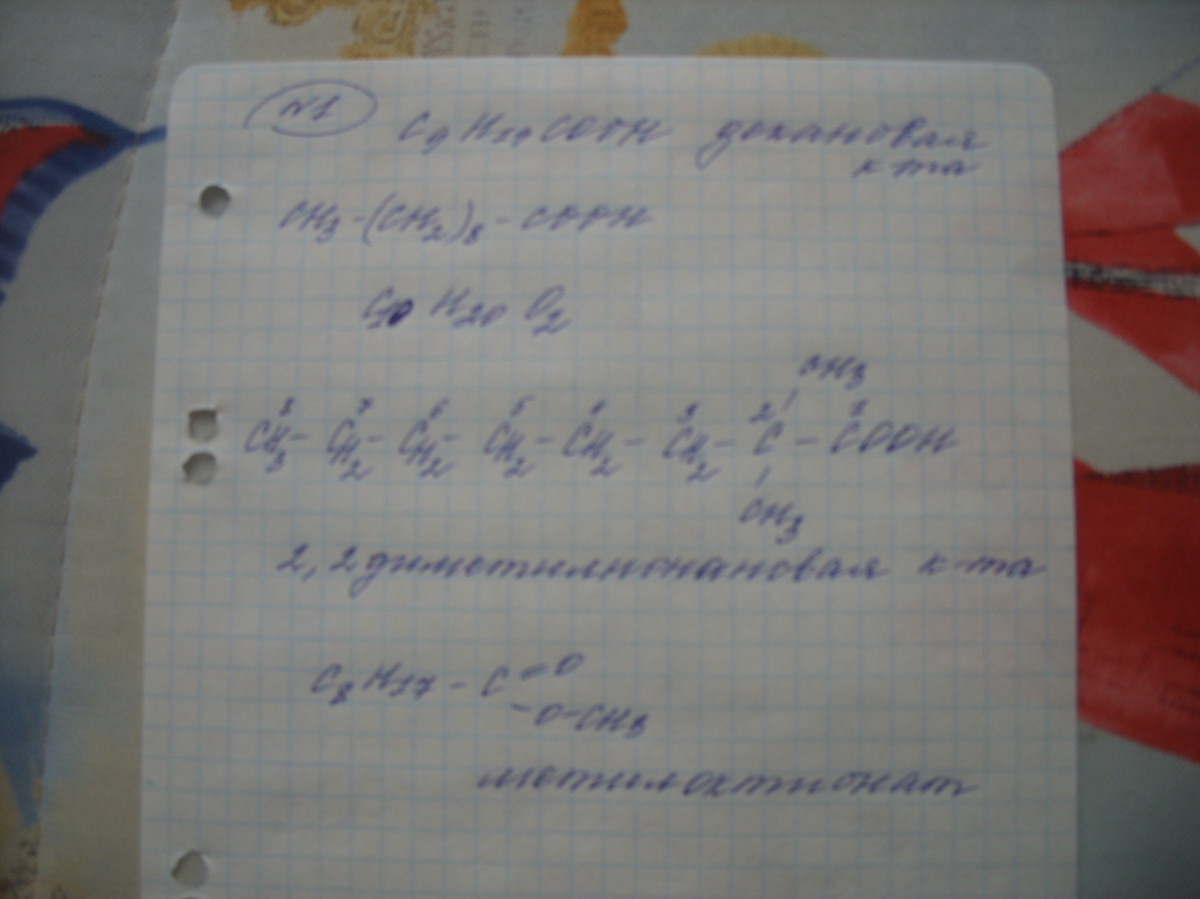 N1
C₉H₁₉COOH декановая
к-та
CH₃-(CH₂)₈-COOH
C₁₀H₂₀O₂
CH₃
8 7 6 5 4 3 2 1
CH₃-CH₂-CH₂-CH₂-CH₂-CH₂-C-COOH
CH₃
2,2диметилнонановая к-та
C₈H₁₇-C=O
-O-CH₃
метилоктионат